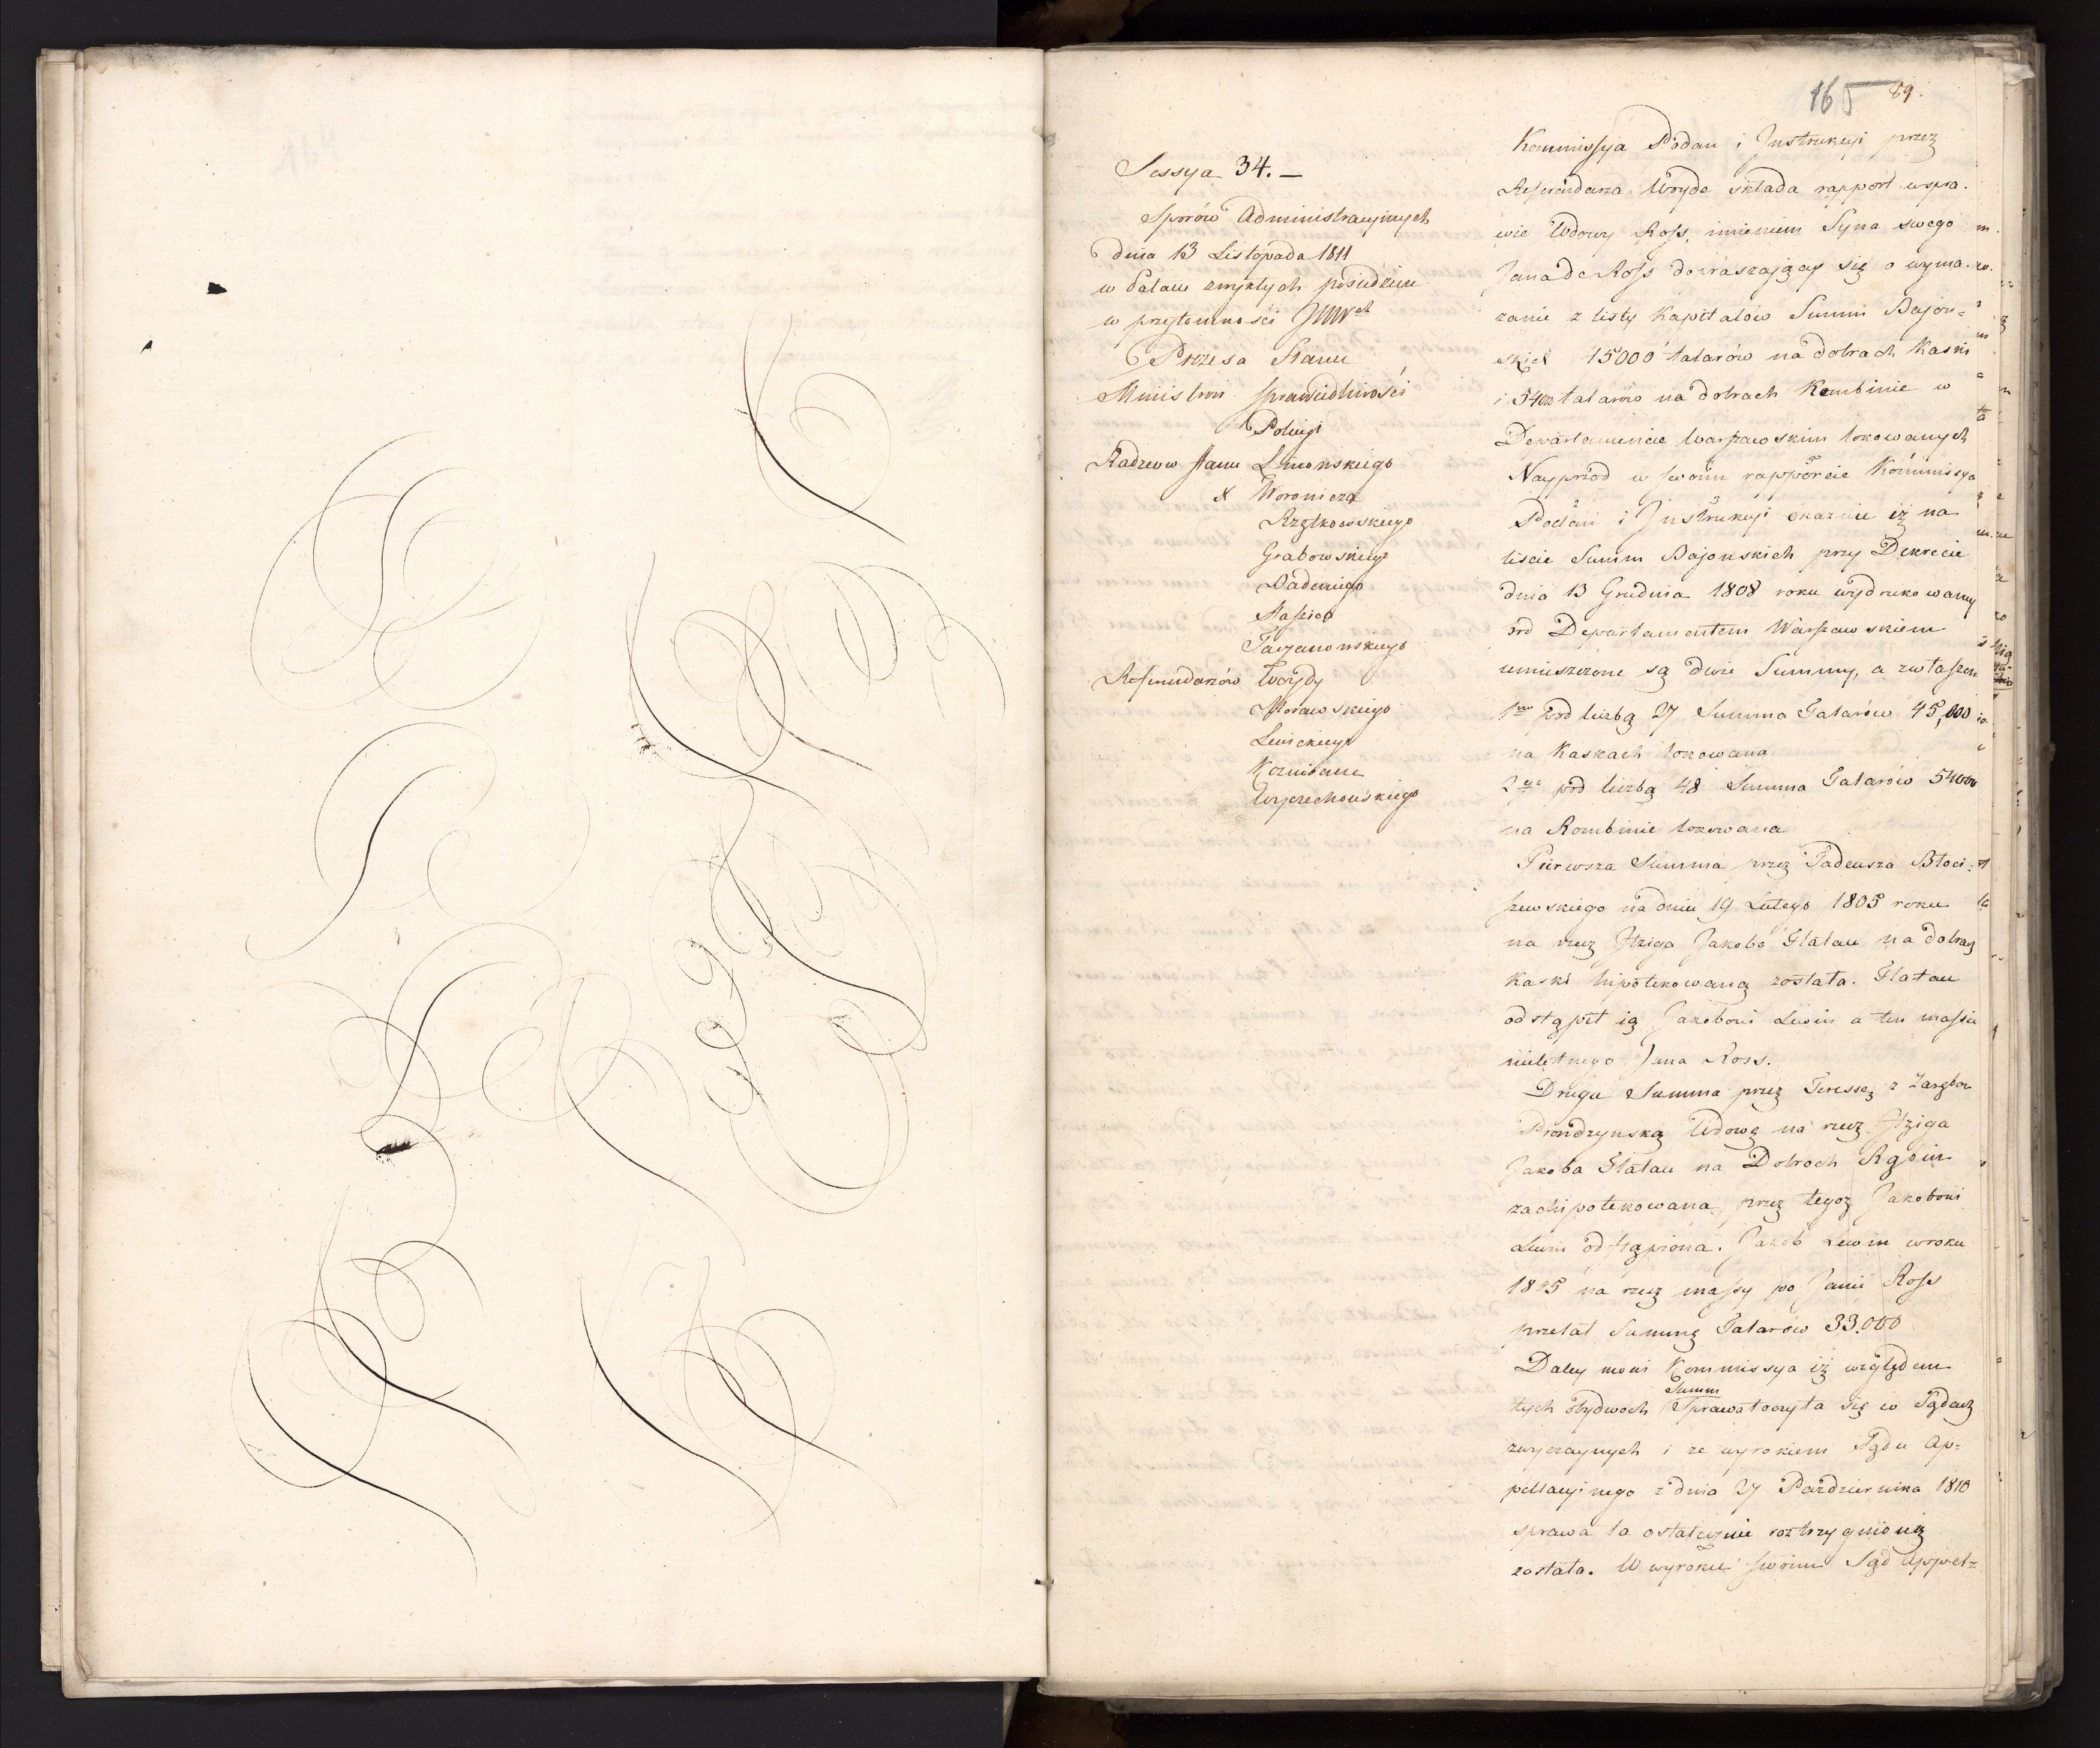 165 89.
Sessya 34. —
Sporów Administracyinych
dnia 13 Listopada 1811
w Pałacu zwykłych posiedzeń
w przytomności JWW
Prezesa Stanu
Ministrów Sprawiedliwości
Policyi
Radzców Stanu Linowskiego
X Woronicza
Rzętkowskiego
Grabowskiego
Badeniego
Staszica
Taczanowskiego
Referendarzów Woydy
Morawskiego
Lewickiego
Koźmiana
Wyczechowskiego
Kommissya Podań i Instrukcyi przez
Referendarza Woyde składa rapport wspra-
wie Wdowy Ross, imieniem Syna swego
Jana de Ross dopraszaiącey się o wyma-
zanie z listy Kapitałów Summ Bajon=
skich 45000 talarów na dobrach Kaski
i 54000 talarów na dobrach Rembinie w
Departamencie Warszawskim lokowanych
Nayprzód w swoim rapporcie Kommissya
Podań i Instrukcyi okazuie iż na
liście Summ Bajonskich przy Dekrecie
dnia 13 Grudnia 1808 roku wydrukowaney
pod Departamentem Warszawskiem
umieszczone są dwie Summy, a zwłaszcza
1mo pod liczbą 27 Summa Talarów 45,000
na Kaskach lokowana
2do pod liczbą 48 Summa Talarów 54000
na Rombinie lokowana
Pierwsza Summa przez Tadeusza Błoci=
szewskiego na dniu 19 Lutego 1805 roku
na rzecz Itziga Jakoba Flatau na dobrach
Kaski hipotekowaną została. Flatau
odstąpił ią Jakobowi Lewin a ten massie
nieletniego Jana Ross.
Druga Summa przez Teressę z Zarębów
Prondzynską Wdowę na rzecz Itziga
Jakoba Flatau na Dobrach Rąbin
zachipotekowana, przez tegoż Jakobowi
Lewin odstąpiona. Jakob Lewin wroku
1805 na rzecz massy po Janie Ross
przelał Summę Talarów 33.000
Daley mówi Kommissya iż względem
tych obydwoch Summ Sprawa toczyła się w Sądach
zwyczaynych i że wyrokiem Sądu Ap=
pellacyinego z dnia 27 Pazdziernika 1810
sprawa ta ostatecznie roztrzygnioną
została. W wyroku swoim Sąd Appel=